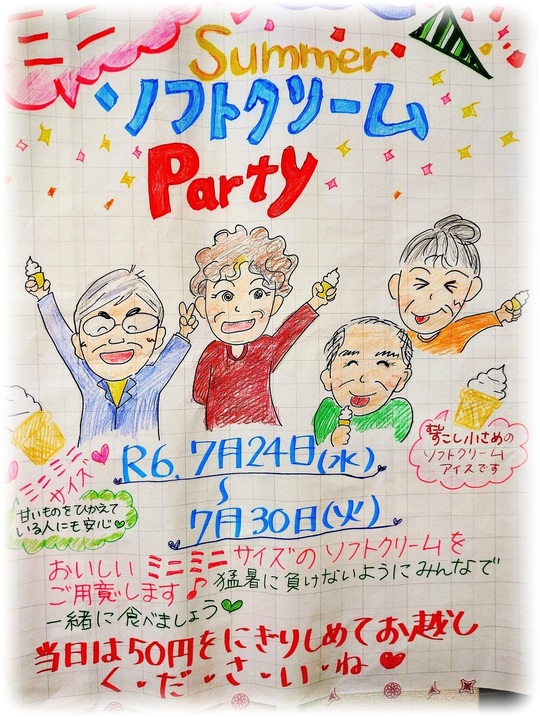 ミニミニ
Summer
ソフトクリーム
Party
ミニミニ
サイズ
甘いものをひかえて
いる人にも安心
すこし小さめの
ソフトクリーム
アイスです
R6. 7月24日(水)
~
7月30日(火)
おいしい ミニミニ サイズの ソフトクリームを
ご用意します♪ 猛暑に負けないようにみんなで
一緒に食べましょう
当日は50円をにぎりしめてお越し
く・だ・さ・い・ね